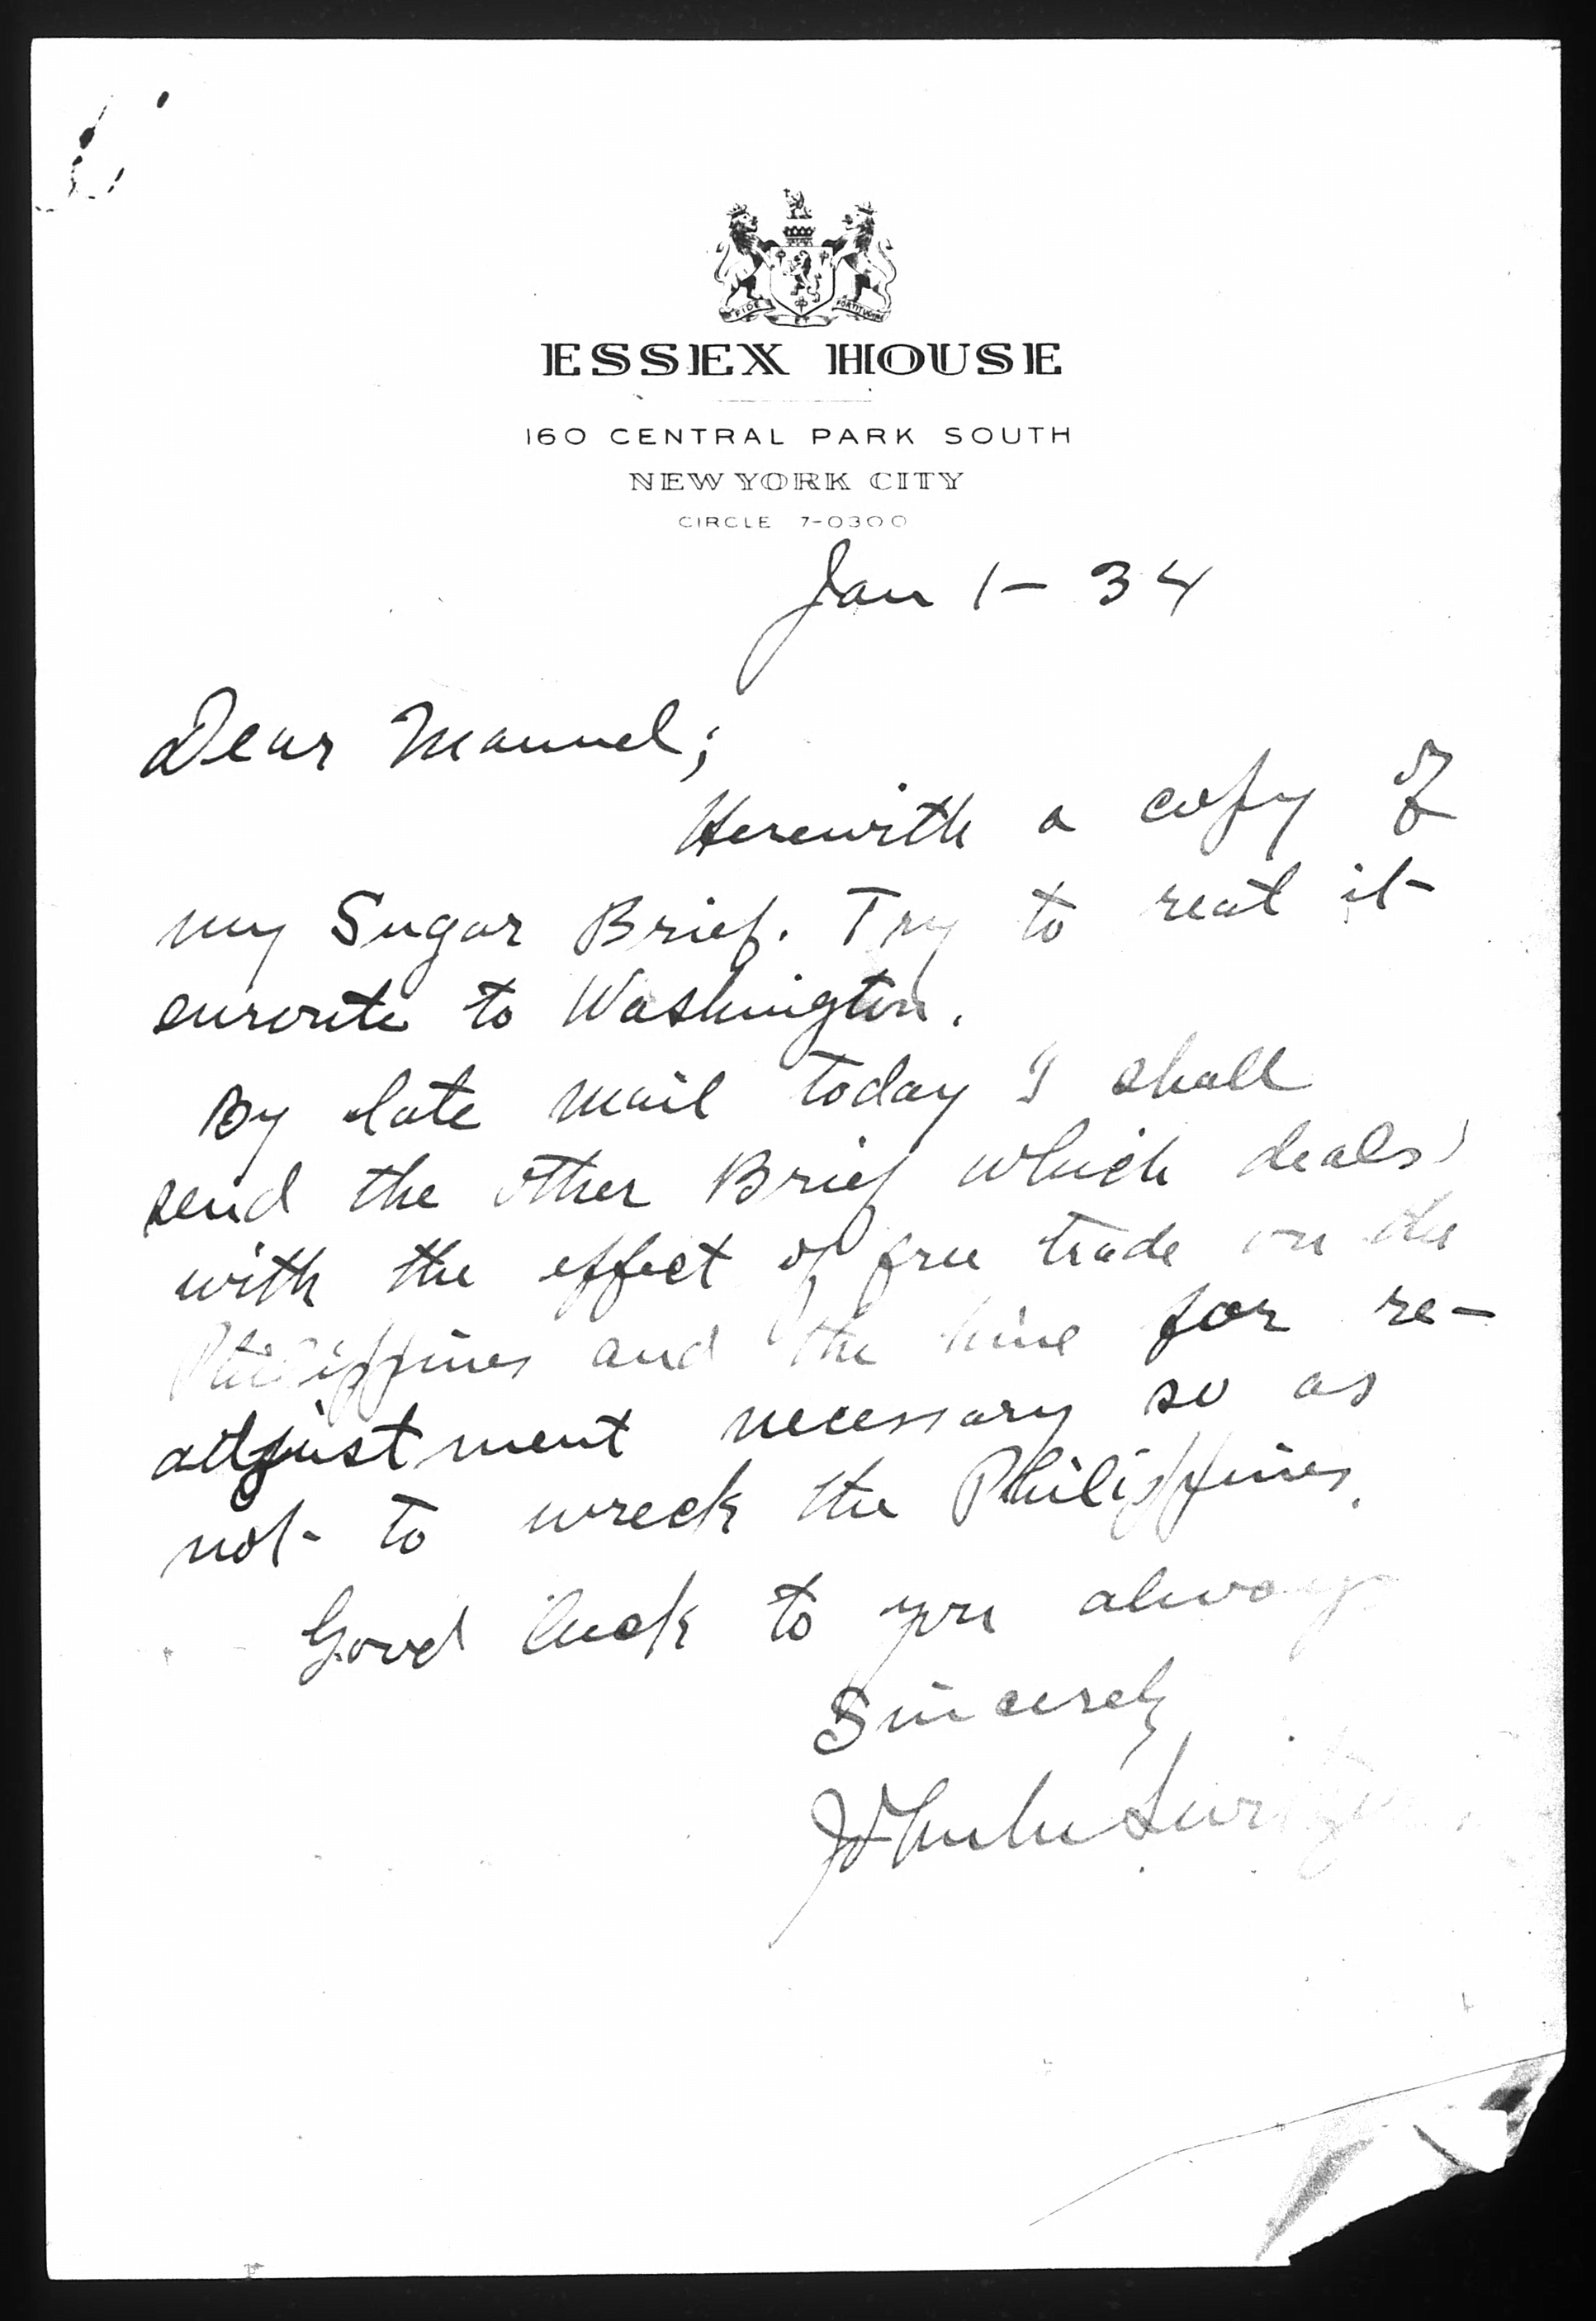 FIDE
FORTITUDINE
ESSEX HOUSE
160 CENTRAL PARK SOUTH
NEW YORK CITY
CIRCLE 7-0300
Jan 1- 34
Dear Manuel;
Herewith a copy of
my Sugar Brief. Try to read it
enroute to Washington.
By late mail today I shall
send the other Brief which deals
with the effect of free trade on the
Philippines and the time for re-
adjustment necessary so as
not to wreck the Philippines.
Good luck to you always
Sincerely